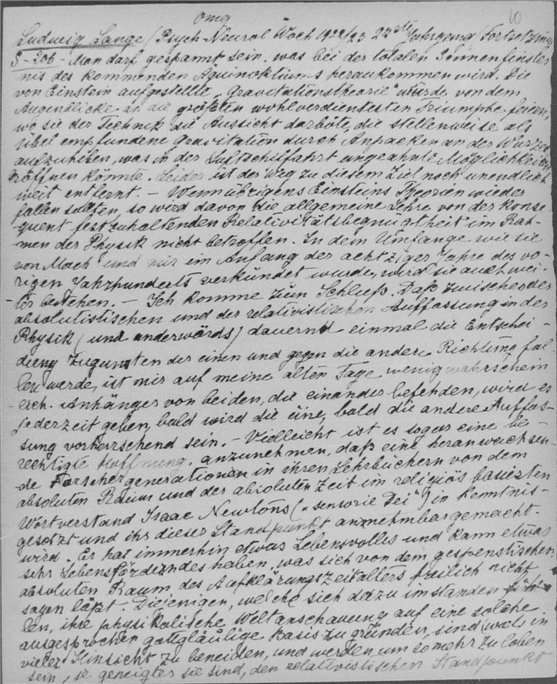 10
Ludwig Lange (Psych Neurol Woch 1922/23 24ster Jahrgang (Fortsetzung
S-206- Man darf gespannt sein, was bei der totalen Sonnenfinster
nis des kommenden Äquinoktiums herauskommen wird. Die
von Einstein aufgestellte Gravitationstheorie würde von dem
Augenblicke an die größten wohlverdientesten Triumphe feiern,
wo sie der Technik die Aussicht darböte, die stellenweise als
übel empfundene Gravitation durch Anpacken an der Wurzel
aufzuheben, was in der Luftschiffahrt ungeahnte Möglichkeiten
eröffnen könnte. Leider ist der Weg zu diesem Ziel noch unendlich
weit entfernt. - Wenn übrigens Einsteins Theorien wieder
fallen sollten, so wird davon die allgemeine Lehre von der konse
quent festzuhaltenden Relativitätsbegnügtheit im Rah-
men der Physik nicht betroffen. In dem Umfange wie sie
von Mach und mir im Anfang der achtziger Jahre des vo-
rigen Jahrhunderts verkündet wurde, wird sie auch wei-
ter bestehen. - Ich komme zum Schluß. Daß zwischen der
absolutistischen und der relativistischen Auffassung in der
Physik (und anderwärts) dauernd einmal die Entschei-
dung zugunsten der einen und gegen die andere Richtung fal
len werde, ist mir auf meine alten Tage wenig wahrschein
lich. Anhänger von beiden, die einander befehden, wird es
jederzeit geben, bald wird die eine, bald die andere Auffas-
sung vorherrschend sein. - Vielleicht ist es sogar eine be-
rechtigte Hoffnung, anzunehmen, daß eine heranwachsen-
de Forschergenerationen in ihren Lehrbüchern von dem
absoluten Raum und der absoluten Zeit im religiös basierten
Wortverstand Isaac Newtons („sensorie Dei") in Kenntnis-
gesetzt und ihr dieser Standpunkt annehmbar gemacht-
wird. Er hat immerhin etwas Lebensvolles und kann etwas
sehr Lebensförderndes haben, was sich von dem gespenstischen
absoluten Raum des Aufklärungszeitalters freilich nicht
sagen läßt. Diejenigen, welche sich dazu imstanden füh-
len, ihre physikalische Weltanschauung auf eine solche
ausgesprochen gottgläubige Basis zu gründen, sind wohl in
vieler Hinsicht zu beneiden, und werden um so mehr zu loben
sein, je geneigter sie sind, den relativistischen Standpunkt